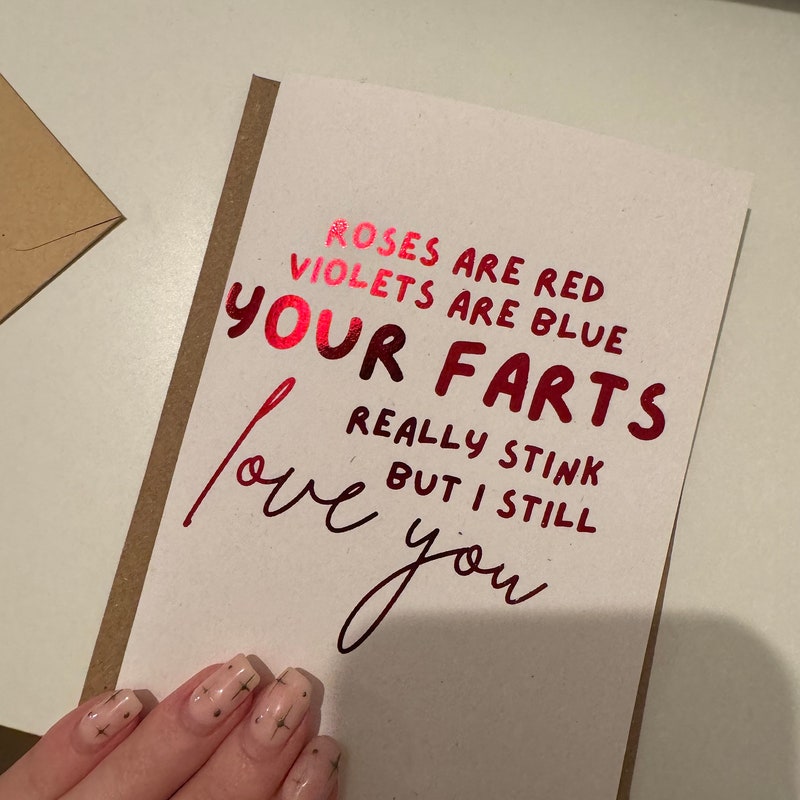 ROSES ARE RED
VIOLETS ARE BLUE
YOUR FARTS
REALLY STINK
BUT I STILL
love you